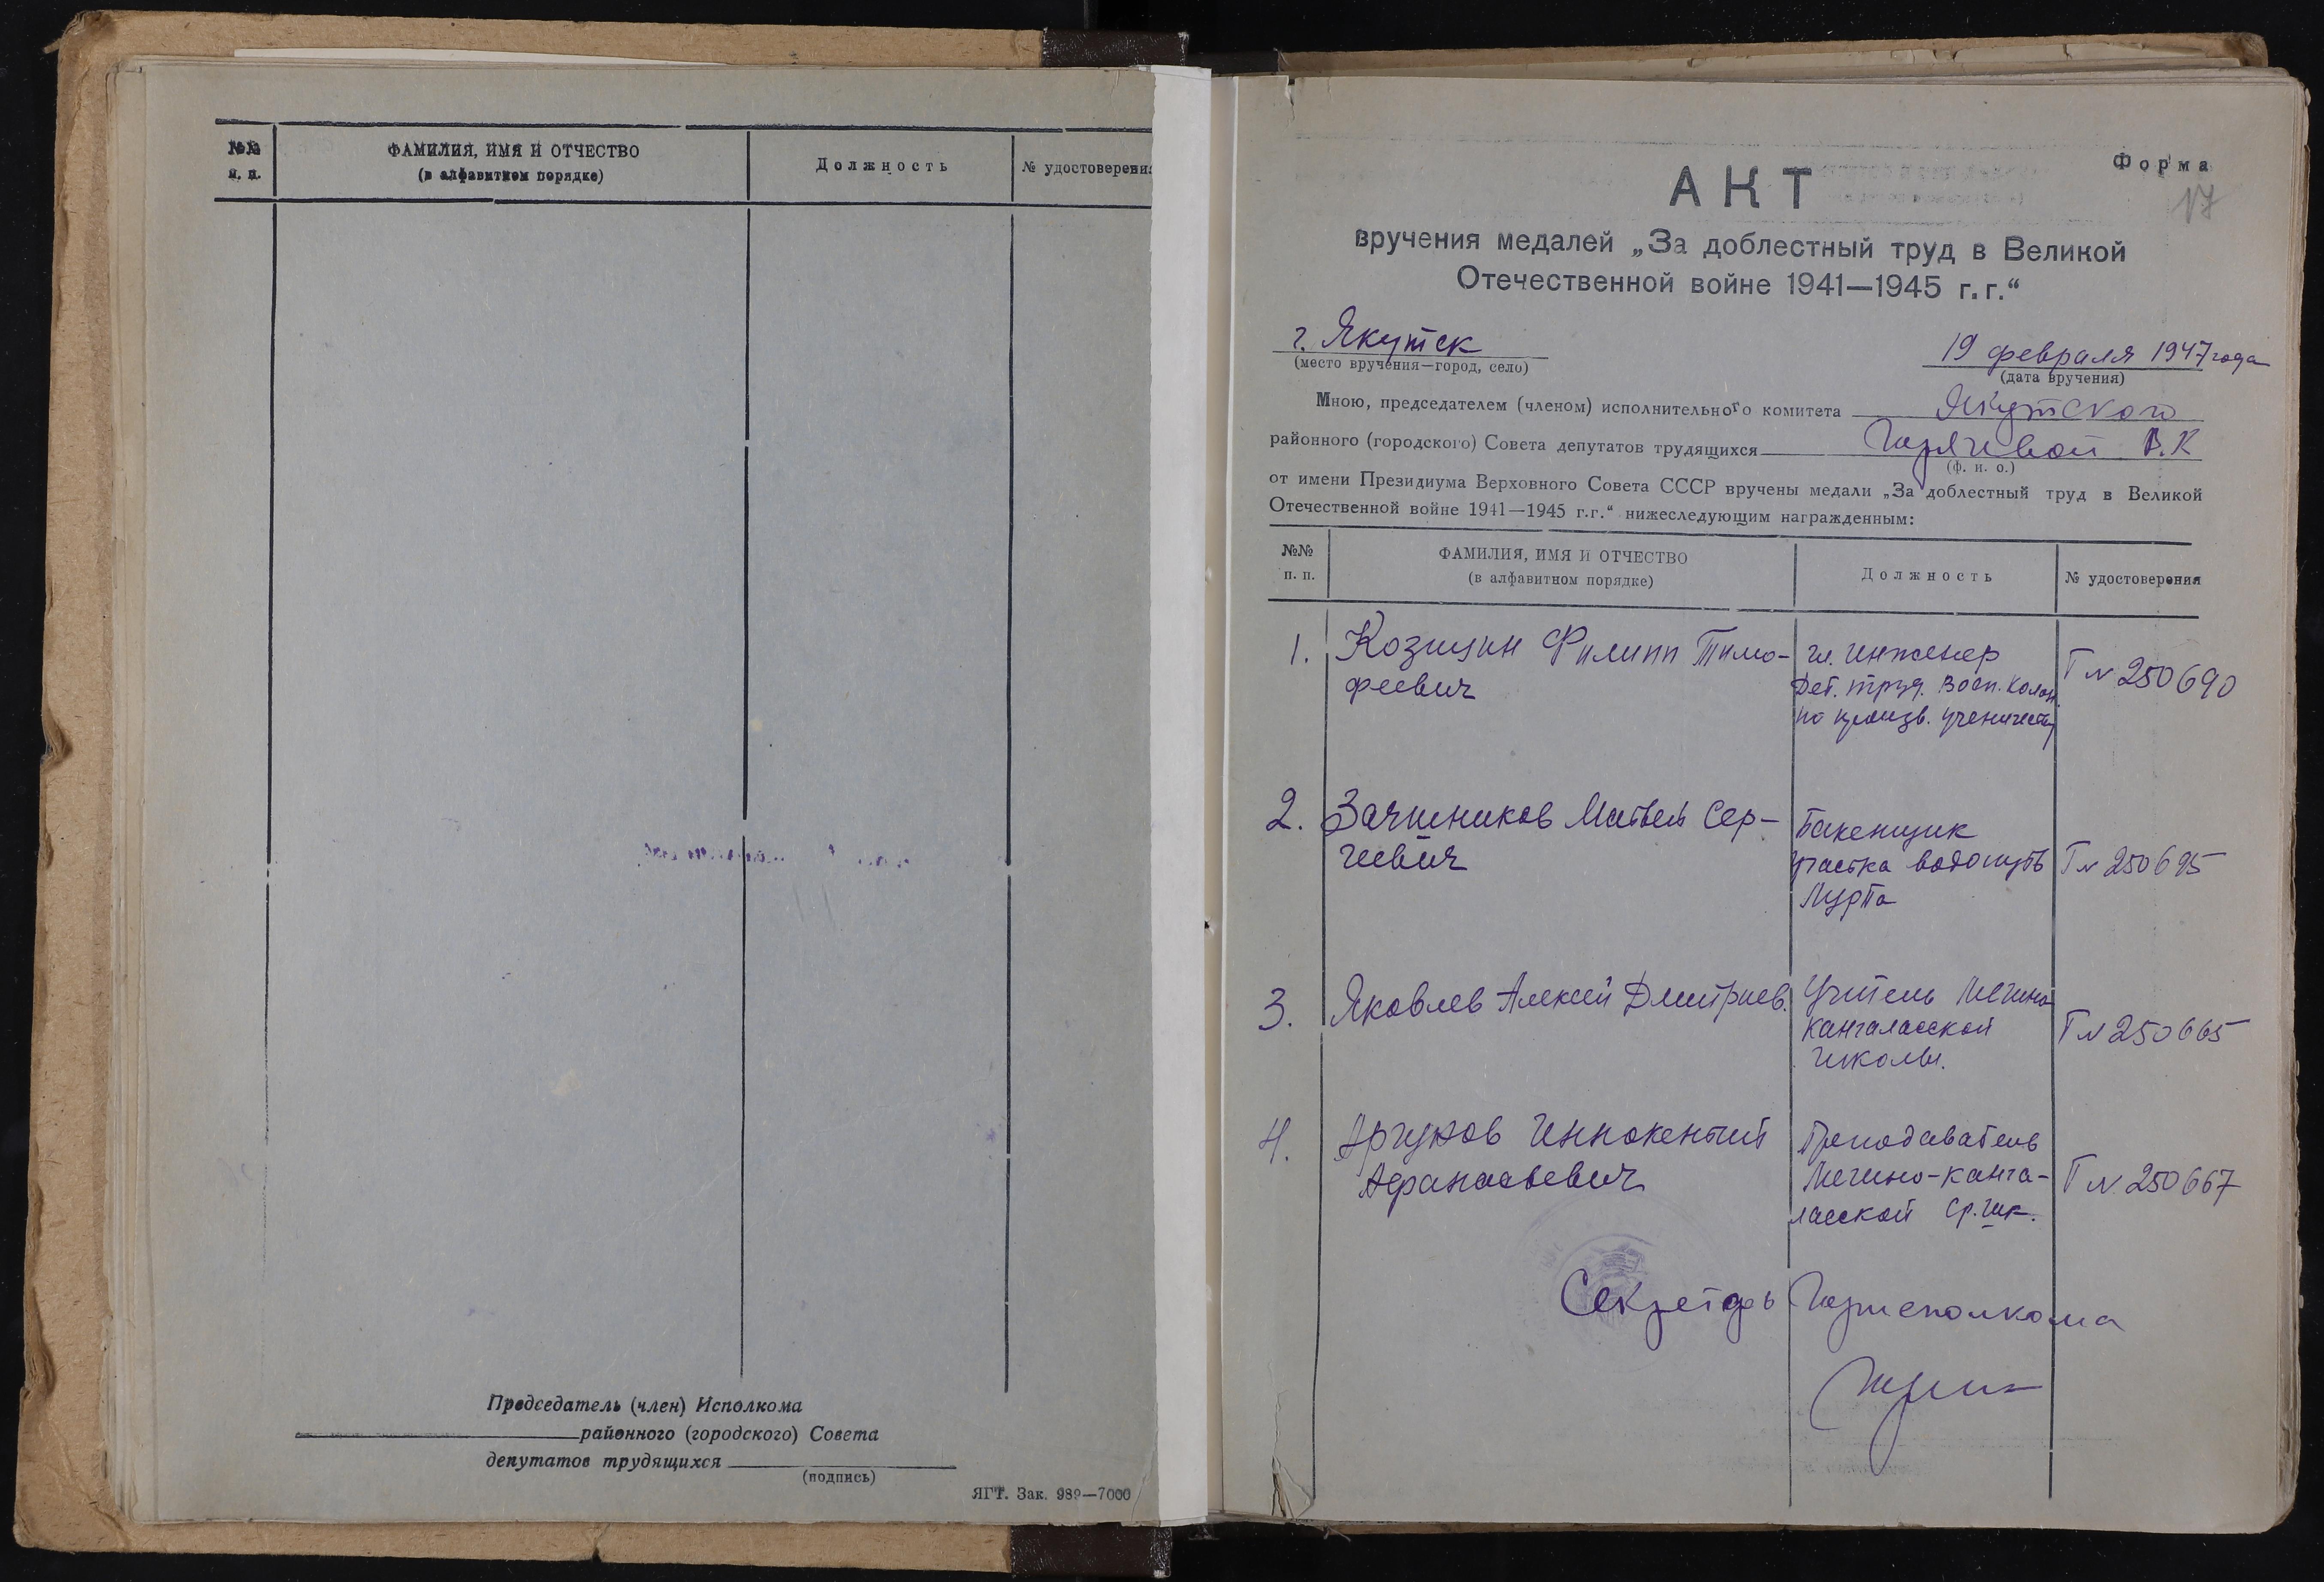 №№
п. п.
ФАМИЛИЯ, ИМЯ И ОТЧЕСТВО
(в алфавитном порядке)
Должность
№ удостоверени
Председатель (член) Исполкома
районного (городского) Совета
депутатов трудящихся
(подпись)
ЯГТ. Зак. 989—7000
Форма
17
АКТ
вручения медалей „За доблестный труд в Великой
Отечественной войне 1941—1945 г.г.“
г. Якутск
19 февраля 1947 года
(место вручения—город, село)
(дата вручения)
Мною, председателем (членом) исполнительного комитета Якутского
районного (городского) Совета депутатов трудящихся Горячевой В.К
(ф. и. о.)
от имени Президиума Верховного Совета СССР вручены медали „За доблестный труд в Великой
Отечественной войне 1941—1945 г.г.“ нижеследующим награжденным:
№№
п. п.
ФАМИЛИЯ, ИМЯ И ОТЧЕСТВО
(в алфавитном порядке)
Должность
№ удостоверения
1. Козицин Филипп Тимо-
феевич
гл. инженер
Дет. труд. Восп. колон.
по произв. ученичеству
Г № 250690
2. Матвей Сер-
геевич
Бакенщик
участка водопуть
Лурпа
Г № 250695
3. Яковлев Алексей Дмитриев.
Учитель Мегино
Кангаласской
школы.
Г № 250665
4. Аргунов Иннокентий
Афанасьевич
Преподаватель
Мегино-Канга-
ласской ср. шк.
Г № 250667
Секретарь Горисполкома